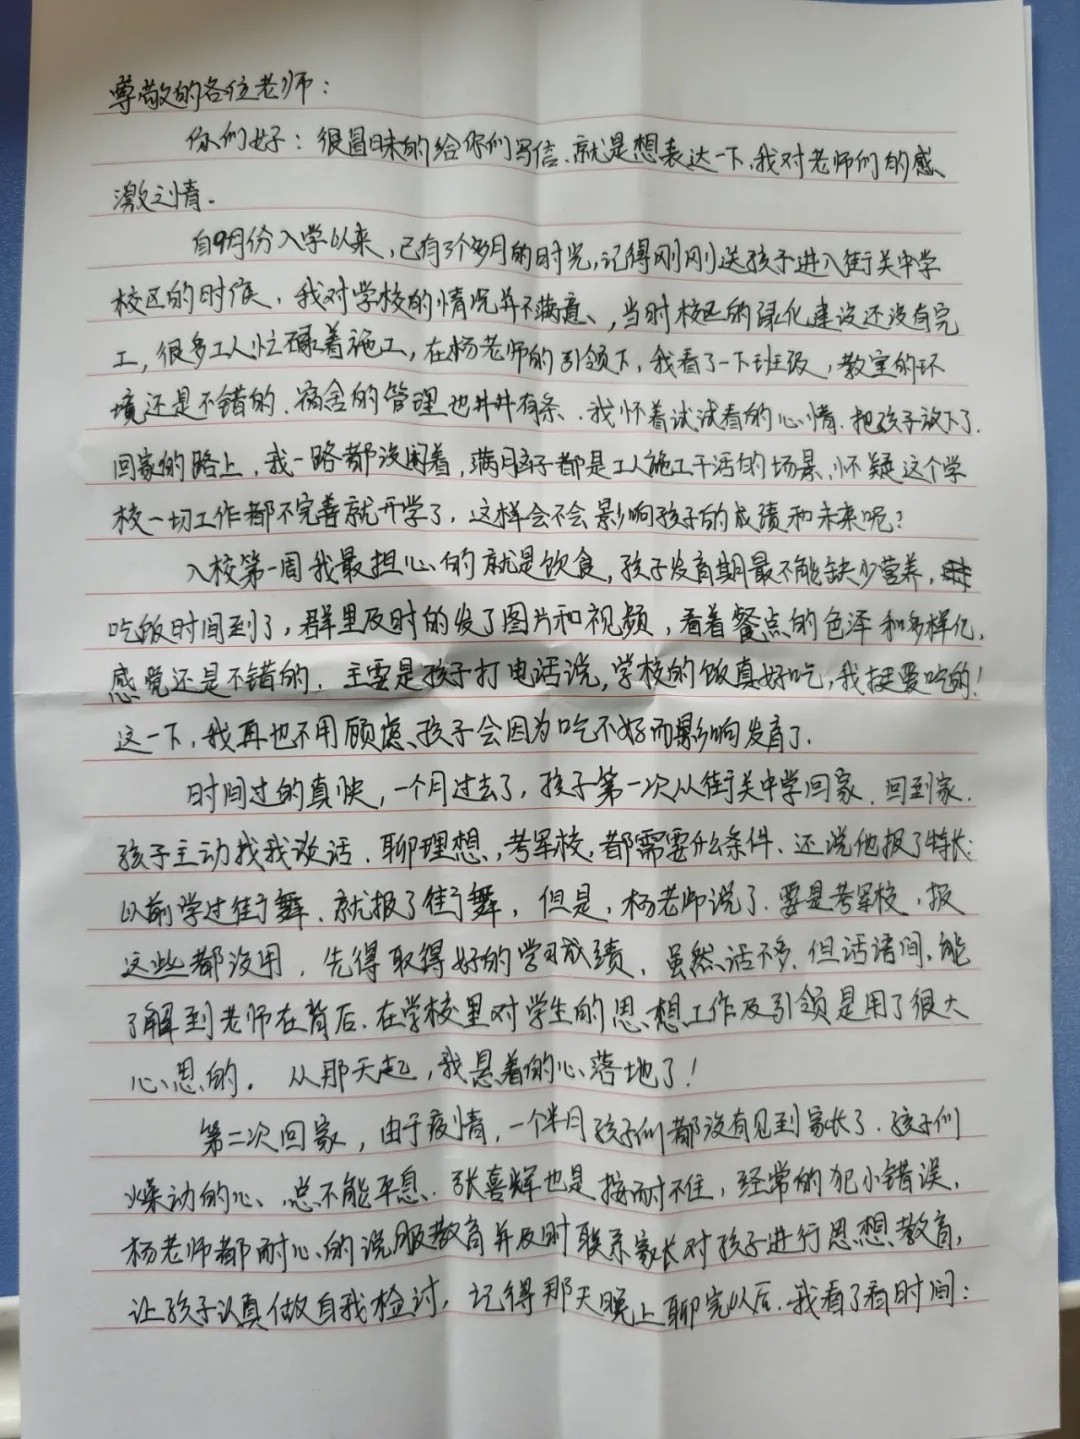 尊敬的各位老师：
你们好：很冒昧的给你们写信、就是想表达一下、我对老师们的感
激之情。
自9月份入学以来，已有3个多月的时光，记得刚刚送孩子进入街关中学
校区的时候、我对学校的情况并不满意、，当时校区的绿化建设还没有完
工，很多工人忙碌着施工，在杨老师的引领下，我看了一下班级，教室的环
境还是不错的、宿舍的管理也井井有条、我怀着试试看的心情、把孩子放下了.
回家的路上，我一路都没闲着，满月亭子都是工人施工干活的场景、怀疑这个学
校一切工作都不完善就开学了，这样会不会影响孩子的成绩和未来呢？
入校第一周我最担心的就是饮食，孩子发育期最不能缺少营养，
吃饭时间到了，群里及时的发了图片和视频，看着餐点的色泽和多样化，
感觉还是不错的，主要是孩子打电话说，学校的饭真好吃，我挺爱吃的！
这一下，我再也不用顾虑、孩子会因为吃不好而影响发育了.
时间过的真快，一个月过去了，孩子第一次从街关中学回家、回到家.
孩子主动找我谈话、聊理想，考军校，都需要什么条件、还说他报了特长：
以前学过街舞、就报了街舞，但是，杨老师说了、要是考军校，报
这些都没用，先得取得好的学习成绩、虽然话不多、但话语间、能
了解到老师在背后、在学校里对学生的思想工作及引领是用了很大
心思的. 从那天起，我悬着的心落地了！
第二次回家，由于疫情，一个半月孩子们都没有见到家长了、孩子们
燥动的心、总不能平息、张喜辉也是按耐不住，经常的犯小错误、
杨老师都耐心的说服教育并及时联系家长对孩子进行思想教育，
让孩子认真做自我检讨，记得那天晚上聊完以后、我看了看时间：